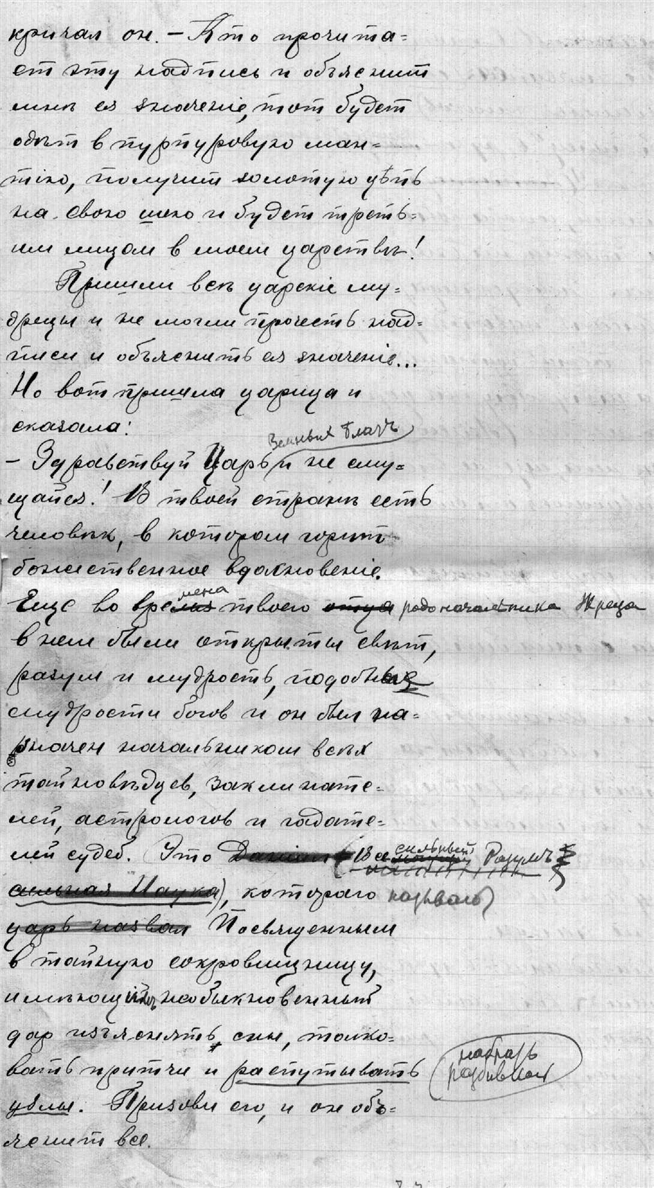 кричал он. – Кто прочита=
ет эту надпись и объяснит
мнѣ ея значеніе, тот будет
одѣт в пурпуровую ман=
тію, получит золотую цѣпь
на свою шею и будет треть=
им лицом в моем царствѣ!
Пришли всѣ царскіе му=
дрецы и не могли прочесть над=
писи и объяснить ея значеніе...
Но вот пришла царица и
сказала:
Земных благъ
– Здравствуй Царь и не сму=
щайся! В твоей странѣ есть
человѣк, в котором горит
божественное вдохновеніе.
мена
Еще во вре твоего отца родоначальника Жреца
в нем были открыты свѣт,
разум и мудрость, подобная
мудрости богов и он был на=
значен начальником всѣх
тайновѣдцев, заклинате=
лей, астрологов и гадате=
сильный
лей судеб. Это Даніил (Все Разумъ
альная Наука), котораго называлъ
царь назвал Посвященным
в тайную сокровищницу,
имѣющий необыкновенный
дар изъяснять сны, толко=
вать притчи и распутывать
узлы. Призови его, и он объ=
яснит все.
набрать